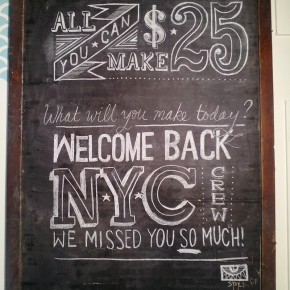 ALL YOU CAN MAKE $25
What will you make today?
WELCOME BACK
N*Y*C CREW
WE MISSED YOU SO MUCH!